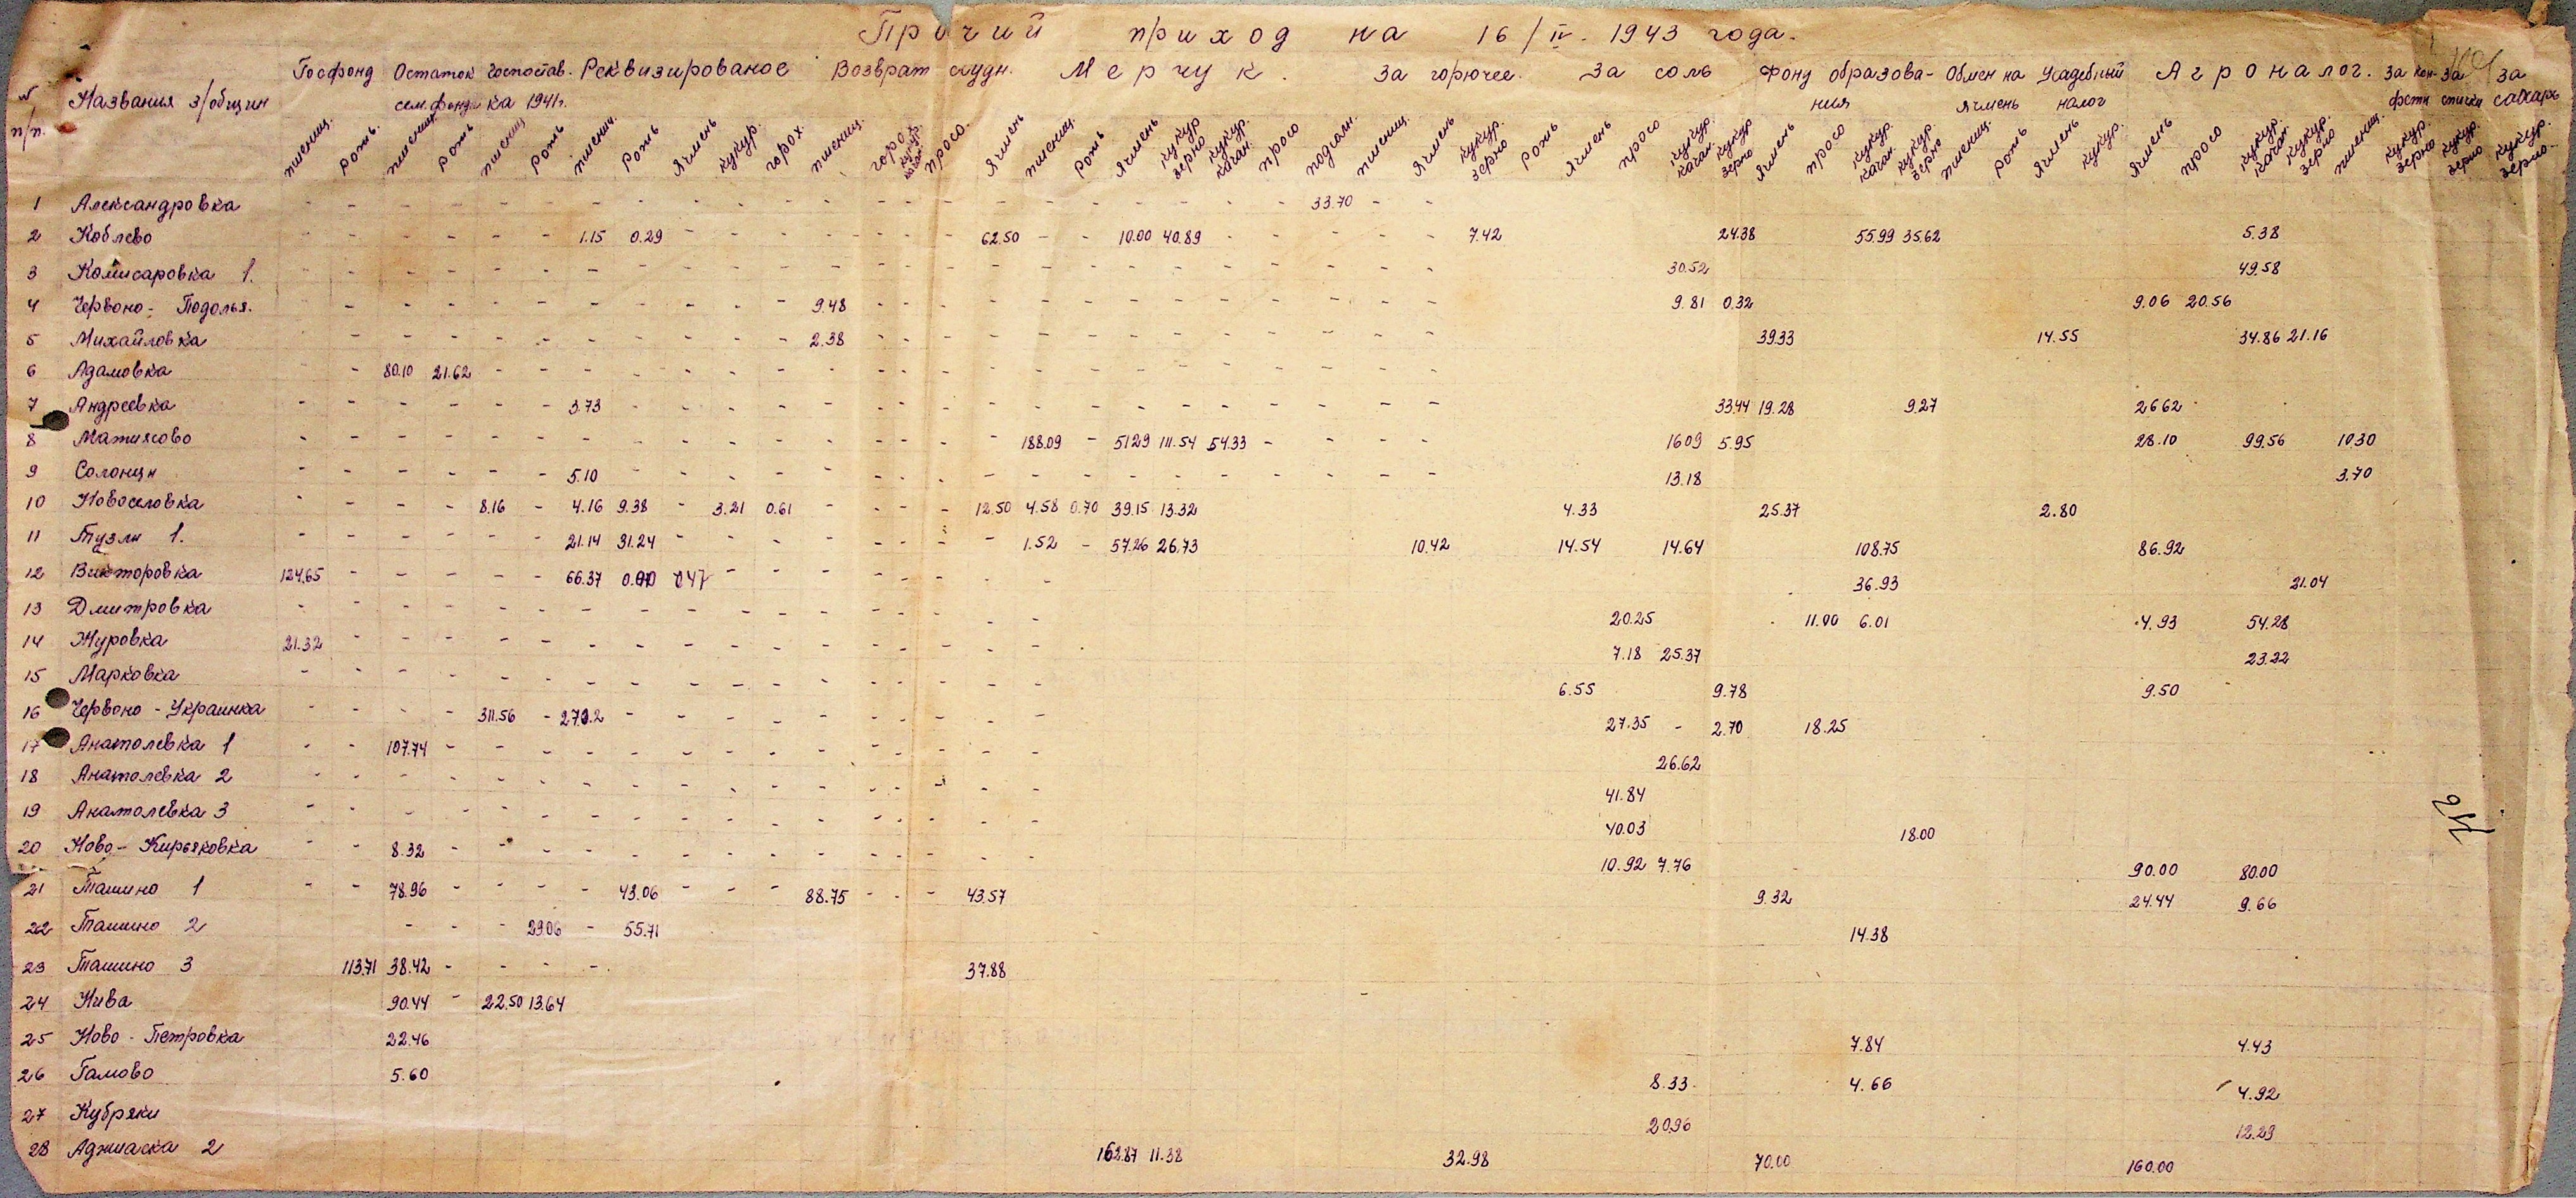 Прочий приход на 16/IV. 1943 года.
№ п/п. Названия з/общин Госфонд Остаток сем.фонда Госпостав-ка 1941г. Реквизированое Возврат ссудн. Мерчук. За горючее. За соль Фонд образова-ния Обмен на ячмень Усадебный налог Агроналог. За кон-фети За спички За сахар
пшениц. рожь. пшениц. рожь пшениц рожь пшенич. рожь ячмень кукур. горох. пшениц. горо. кукур. качан. просо. ячмень пшениц. рожь ячмень кукур зерно кукур. качан. просо подсолн. пшениц. ячмень кукур. зерно рожь ячмень просо кукур. качан. кукур зерно ячмень просо кукур. качан. кукур. зерно пшениц. рожь ячмень кукур. ячмень просо кукур. качан. кукур. зерно пшениц. кукур. зерно кукур. зерно кукур. зерно.
1 Александровка - - - - - - - - - - - - - - - - - - - - - - 33.70 - -
2 Коблево - - - - - - 1.15 0.29 - - - - - - - 62.50 - - 10.00 40.89 - - - - - 7.42 24.38 55.99 35.62 5.38
3 Комисаровка 1. - - - - - - - - - - - - - - - - - - - - - - - - - 30.52 49.58
4 Червоно-Подолья. - - - - - - - - - - 9.48 - - - - - - - - - - - - - 9.81 0.32 9.06 20.56
5 Михайловка - - - - - - - - - - 2.38 - - - - - - - - - - - - - 39.33 14.55 34.86 21.16
6 Адамовка - 80.10 21.62 - - - - - - - - - - - - - - - - - - - - -
7 Андреевка - - - - - - 3.73 - - - - - - - - - - - - - - - - - - 33.44 19.28 9.27 26.62
8 Матиясово - - - - - - - - - - - - - - - - 188.09 - 51.29 111.54 54.33 - - - - 16.09 5.95 28.10 99.56 10.30
9 Солонци - - - - - - 5.10 - - - - - - - - - - - - - - - - - - 13.18 3.70
10 Новоселовка - - - - 8.16 - 4.16 9.38 - 3.21 0.61 - - - - 12.50 4.58 0.70 39.15 13.32 4.33 25.37 2.80
11 Тузли 1. - - - - - - 21.14 31.24 - - - - - - - - 1.52 - 57.26 26.73 10.42 14.54 14.64 108.75 86.92
12 Викторовка 124.65 - - - - - 66.37 0.47 - - - - - - - - 36.93 21.04
13 Дмитровка - - - - - - - - - - - - - - - - - 20.25 11.00 6.01 4.93 54.28
14 Журовка 21.32 - - - - - - - - - - - - - - - - 7.18 25.37 23.22
15 Марковка - - - - - - - - - - - - - - - - - 6.55 9.78 9.50
16 Червоно-Украинка - - - - 311.56 - - - - - - - - - - - 27.35 - 2.70 18.25
17 Анатолевка 1 - - 107.74 - - - - - - - - - - - - - - 26.62
18 Анатолевка 2 - - - - - - - - - - - - - - - - - 41.84
19 Анатолевка 3 - - - - - - - - - - - - - - - - - 40.03 18.00
20 Ново-Кирьяковка - - 8.32 - - - - - - - - - - - - - - 10.92 7.76 90.00 80.00
21 Ташино 1 - - 78.96 - - - - 43.06 - - - 88.75 - - - 43.57 9.32 24.44 9.66
22 Ташино 2 - - - 29.06 - 55.71 14.38
23 Ташино 3 113.71 38.42 - - - - 37.88
24 Нива 90.44 - 22.50 13.64
25 Ново-Петровка 22.46 7.84 4.43
26 Гамово 5.60 8.33 4.66 4.92
27 Кубряки 20.96 12.29
28 Аджиаска 2 162.87 11.38 32.98 70.00 160.00